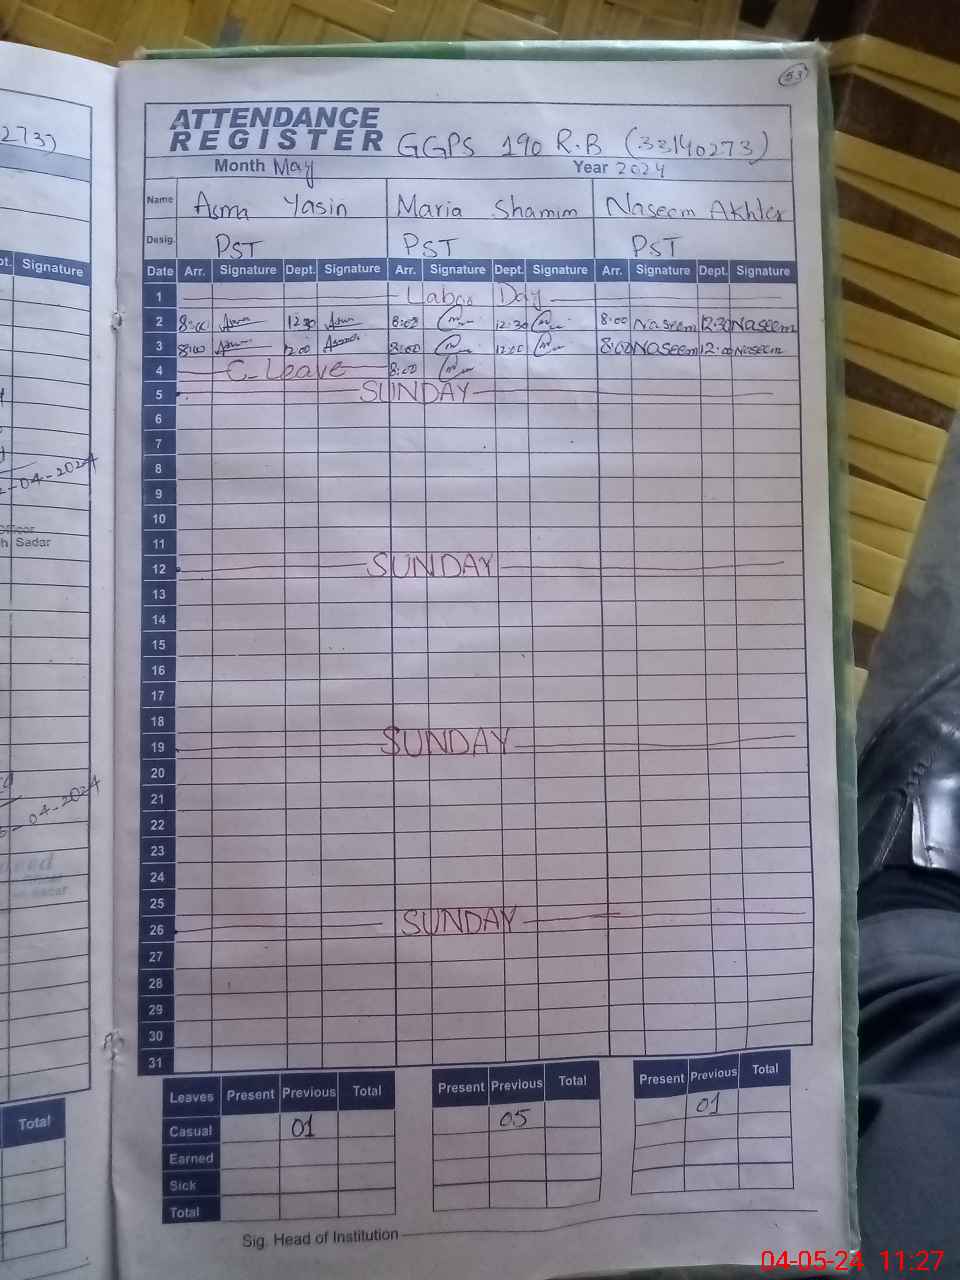 53
273)
ATTENDANCE
REGISTER GGPS 190 R.B (33140273)
Month May Year 2024
Name Asma Yasin Maria Shamim Naseem Akhter
Desig. PST PST PST
pt. Signature
Date Arr. Signature Dept. Signature Arr. Signature Dept. Signature Arr. Signature Dept. Signature
1 Labour Day
2 8:00 Asma 12:30 Asma 8:00 12:30 8:00 Naseem 12:30 Naseem
3 8:00 Asma 12:00 Asma 8:00 12:00 8:00 Naseem 12:00 Naseem
4 C-Leave 8:00
5 SUNDAY
6
7
8
9
-04-2024
10
11
h Sadar
12 SUNDAY
13
14
15
16
17
18
19 SUNDAY
20
21
-04-2024
22
23
24
25
26 SUNDAY
27
28
29
30
31
Leaves Present Previous Total Present Previous Total Present Previous Total
Casual 01 05 01
Total
Earned
Sick
Total
Sig. Head of Institution
04-05-24 11:27